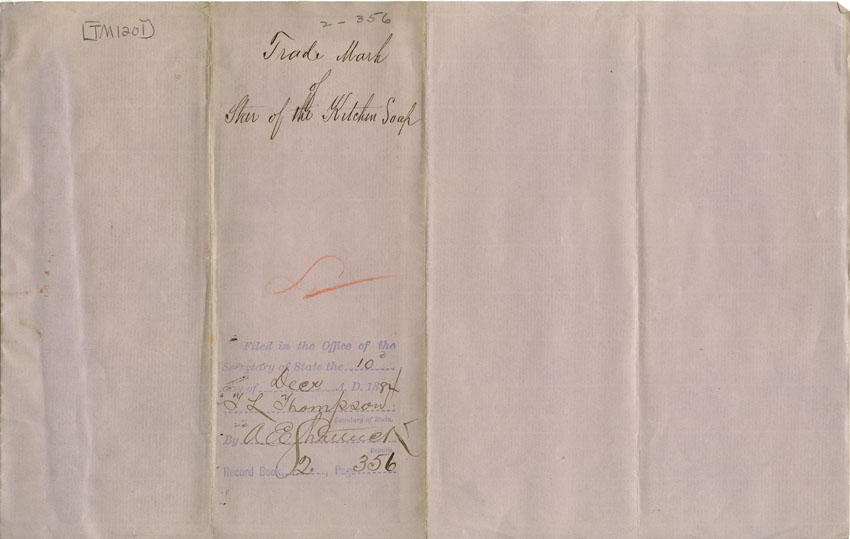 [TM1201]
2 - 356
Trade Mark
of
Star of the Kitchen Soap
Filed in the Office of the
Secretary of State the 10
Day of Decr A. D. 1884
T L Thompson
Secretary of State.
By A E Shattuck
Deputy.
Record Book 2, Page 356